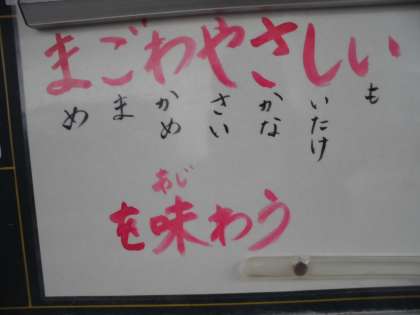 まごわやさしい
め ま かめ さい かな いたけ も
あじ
を味わう